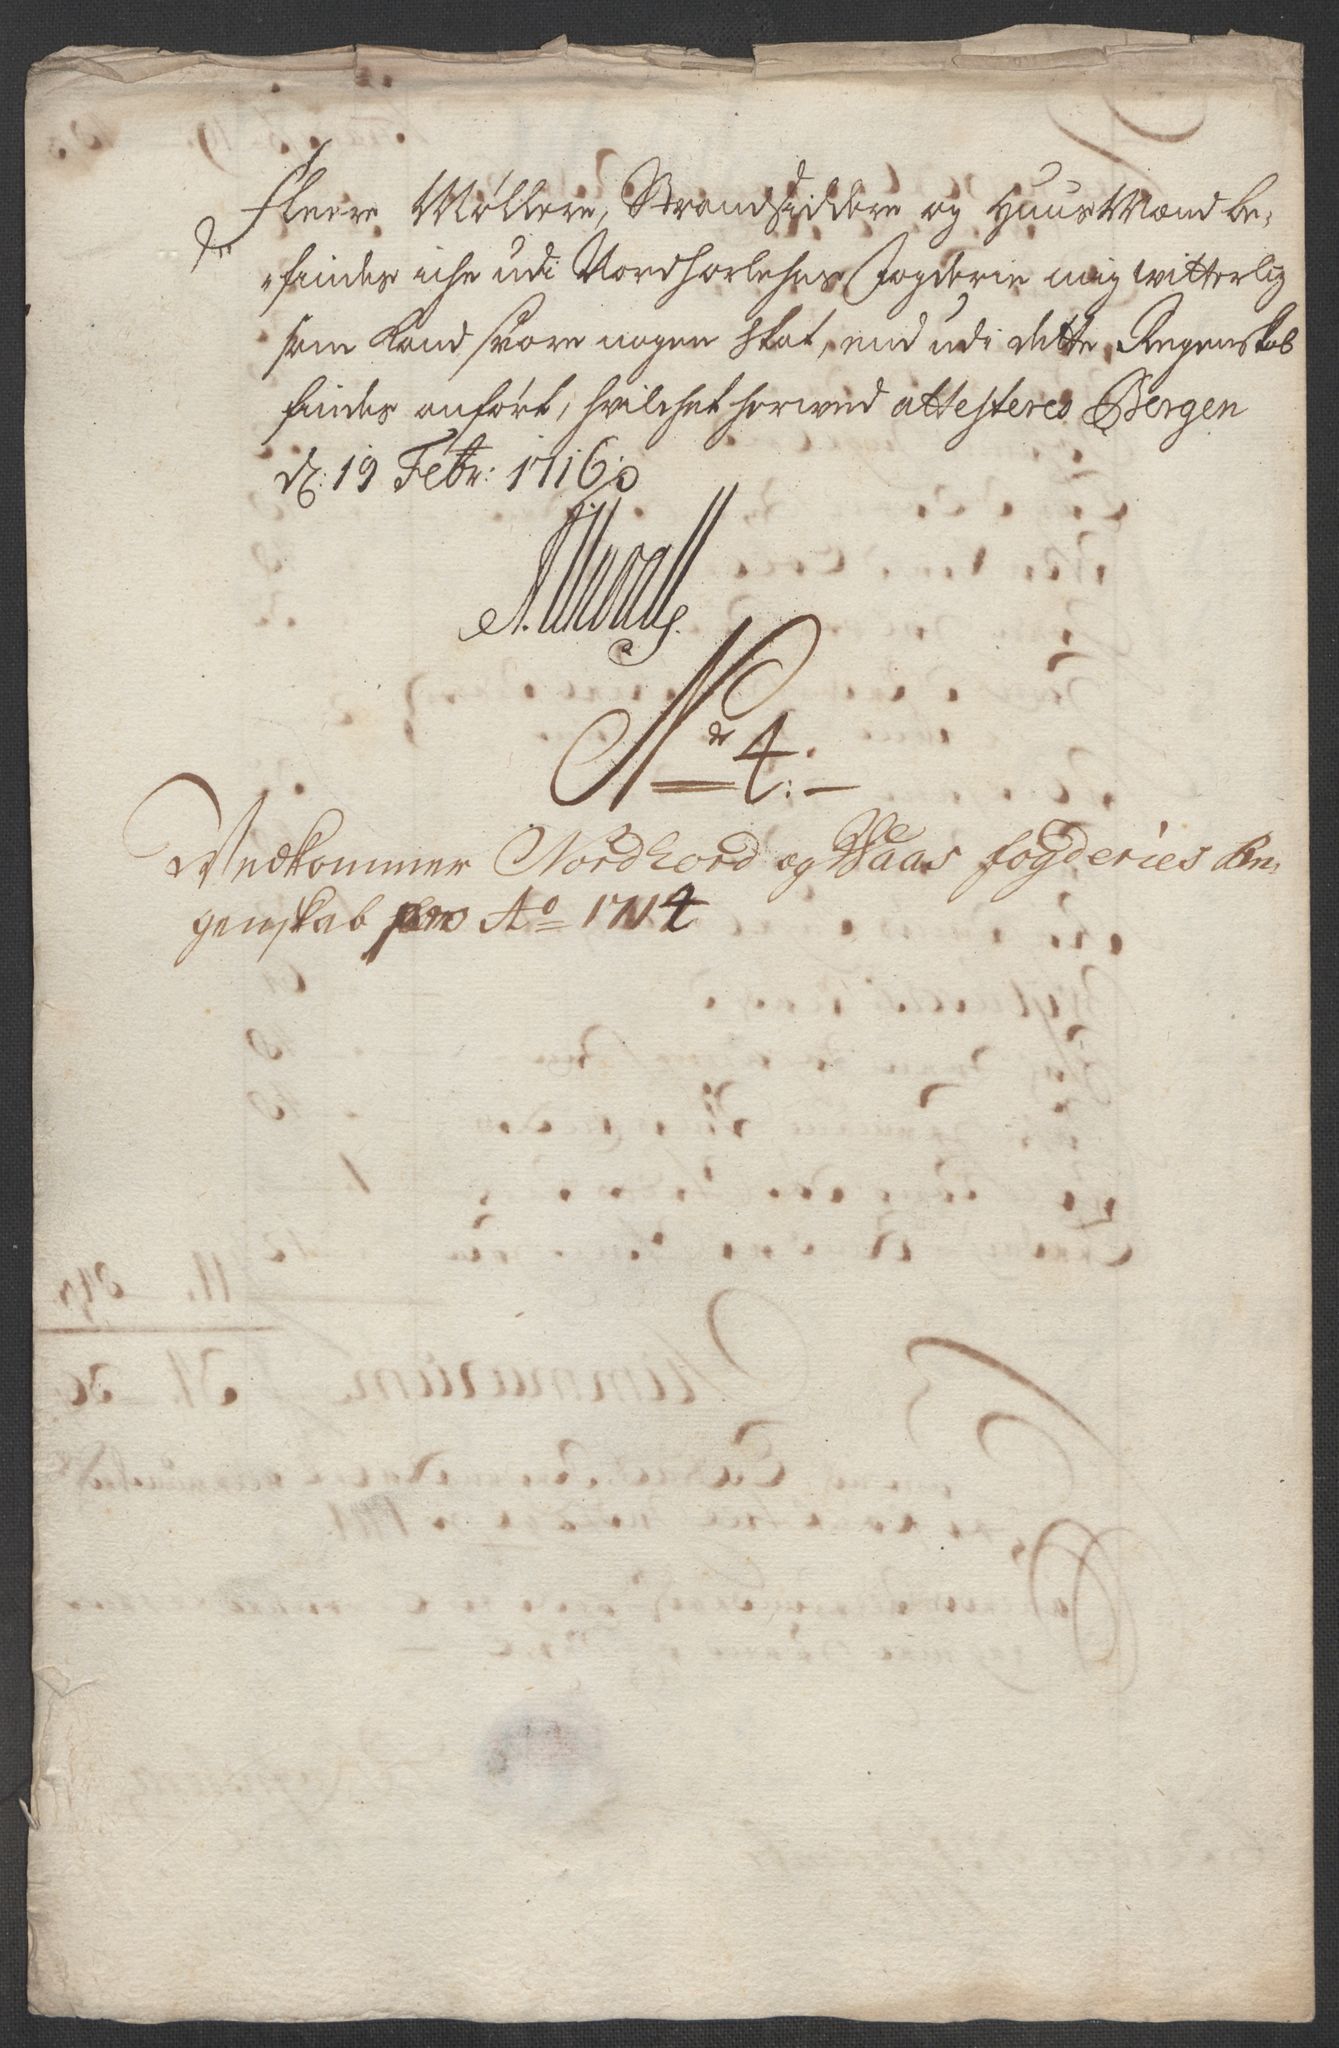 Fleere Møllere, Strandsiddere og HuusMænd be,
findes iche udi Nordhorlehns Fogderie mig witterlig
som kand svare nogen skat, end udi dette Regenskab
findes anført, hvilchet herwed attesteres Bergen
d: 19 Febr: 1716
No 4:
Vedkommer Nordhord og Waas fogderies Re,
genskab pro Ao 1714